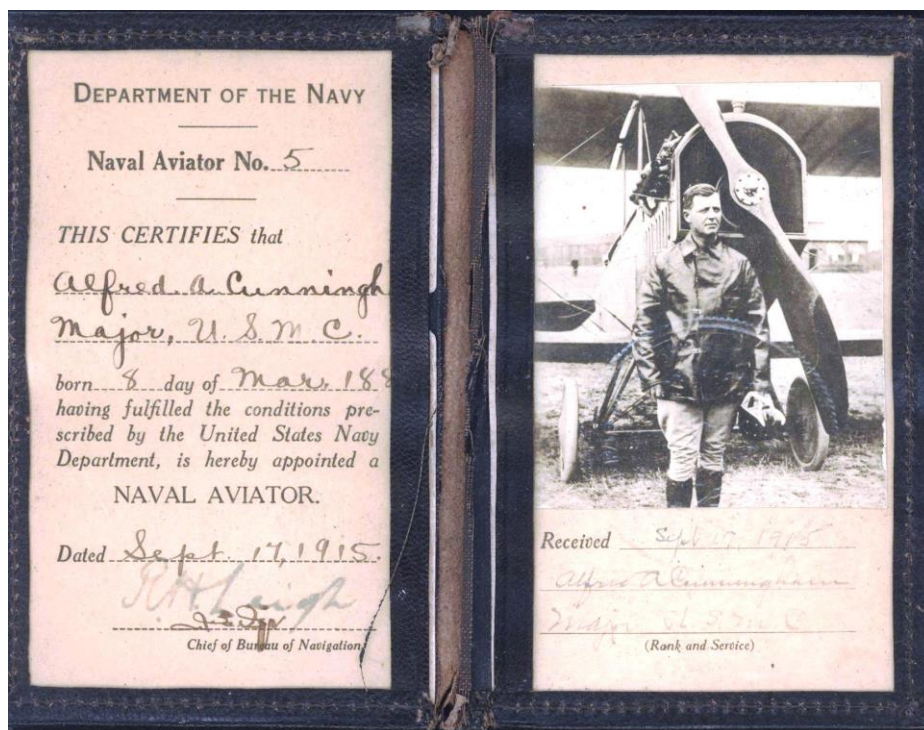 DEPARTMENT OF THE NAVY
Naval Aviator No. 5
THIS CERTIFIES that
Alfred. A. Cunningh
Major, U. S. M. C.
born 8 day of Mar. 188
having fulfilled the conditions pre-
scribed by the United States Navy
Department, is hereby appointed a
NAVAL AVIATOR.
Dated Sept. 17, 1915.
R H Leigh
Chief of Bureau of Navigation
Received Sept 17, 1915
Alfred A Cunningham
Major U. S. M. C.
(Rank and Service)